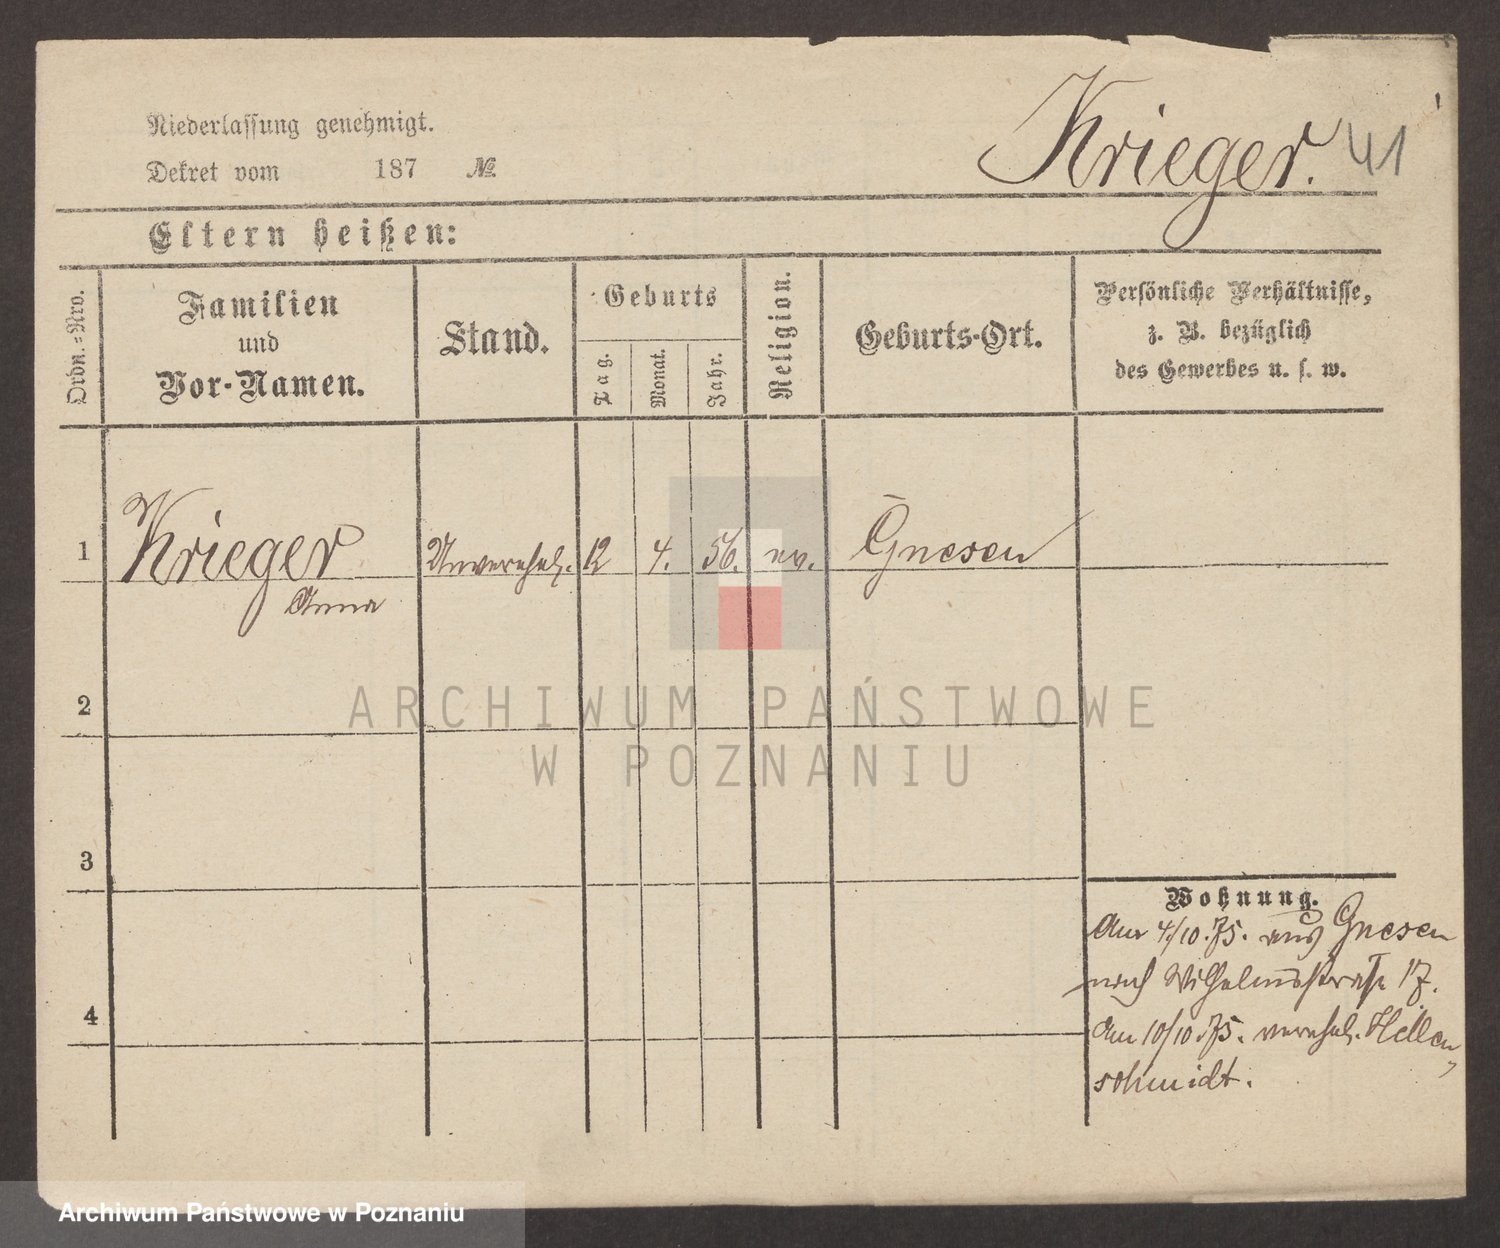 Niederlassung genehmigt.
Dekret vom 187 №
Krieger. 41
Eltern heißen:
Ordn.-Nro.
Familien
und
Vor-Namen.
Stand.
Geburts
Tag.
Monat.
Jahr.
Religion.
Geburts-Ort.
Persönliche Verhältnisse,
z. B. bezüglich
des Gewerbes u. s. w.
1 Krieger Unverehel. 12 4. 56. ev. Gnesen
Anna
2
3
4
Wohnung.
Am 4/10.75. aus Gnesen
nach Wilhelmsstraße 17.
Am 10/10.75. verehel. Hellen-
schmidt.
ARCHIWUM PAŃSTWOWE
W POZNANIU
Archiwum Państwowe w Poznaniu